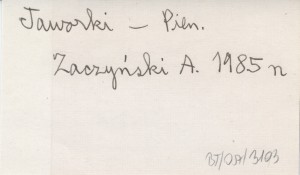 Jaworki – Pien.
Zaczyński A. 1985 n
BT/OA/3103